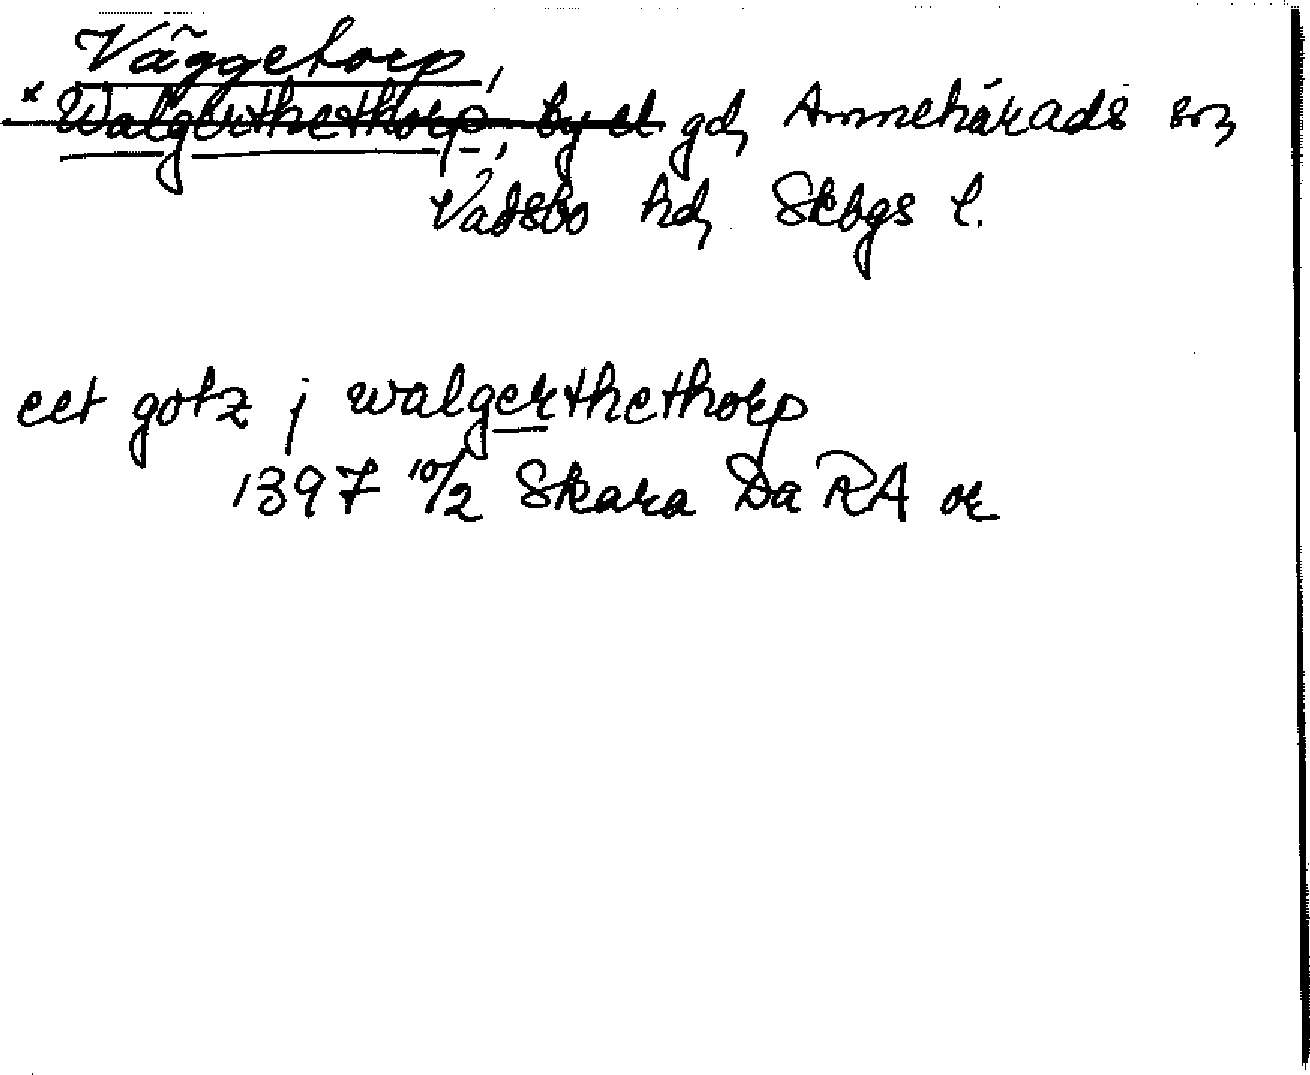 Väggetorp,
* Walgerthethorp, by el gd, Amnehärads sn,
Vadsbo hd, Skbgs l.
eet gotz j walgerthethorp
1397 10/2 Skara Da RA or